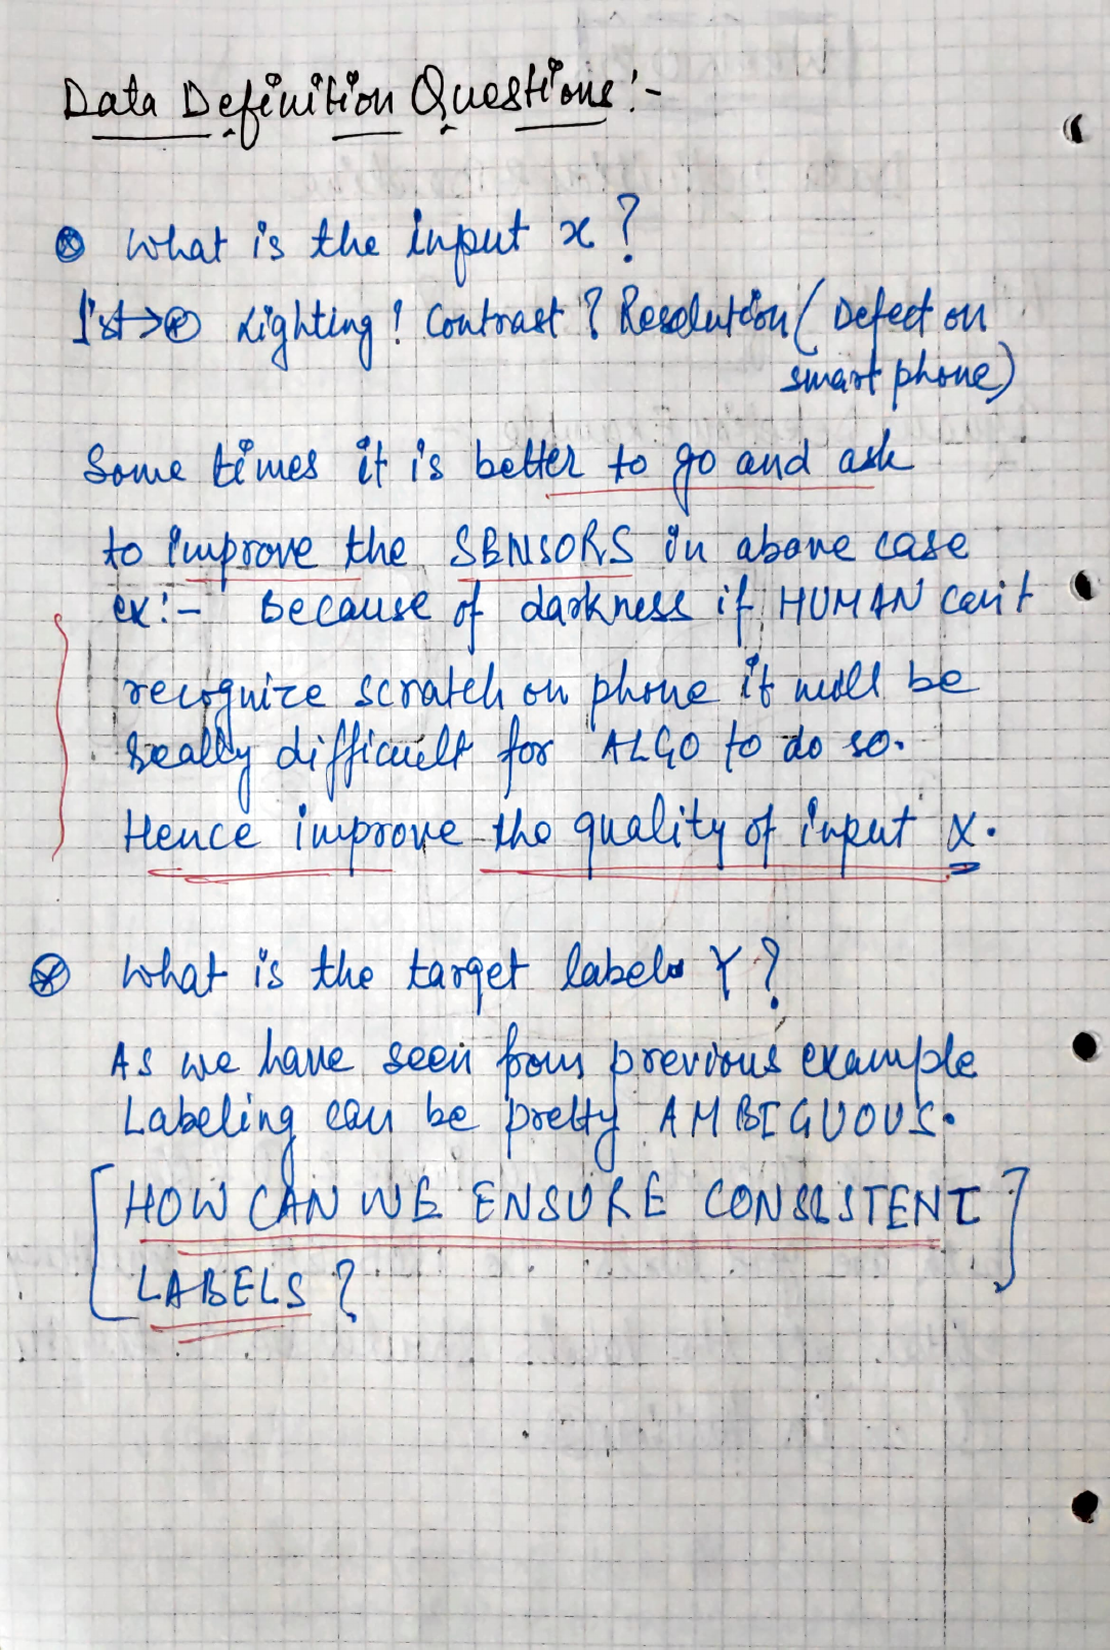 Data Definition Questions:-
What is the input x?
1'st→ Lighting! Contrast? Resolution (Defect on
smart phone)
Some times it is better to go and ask
to improve the SENSORS in above case
ex:- Because of darkness if HUMAN can't
recognize scratch on phone it will be
really difficult for ALGO to do so.
Hence improve the quality of input X.
What is the target label Y?
As we have seen from previous example
Labeling can be pretty AMBIGUOUS.
[HOW CAN WE ENSURE CONSISTENT
LABELS?]